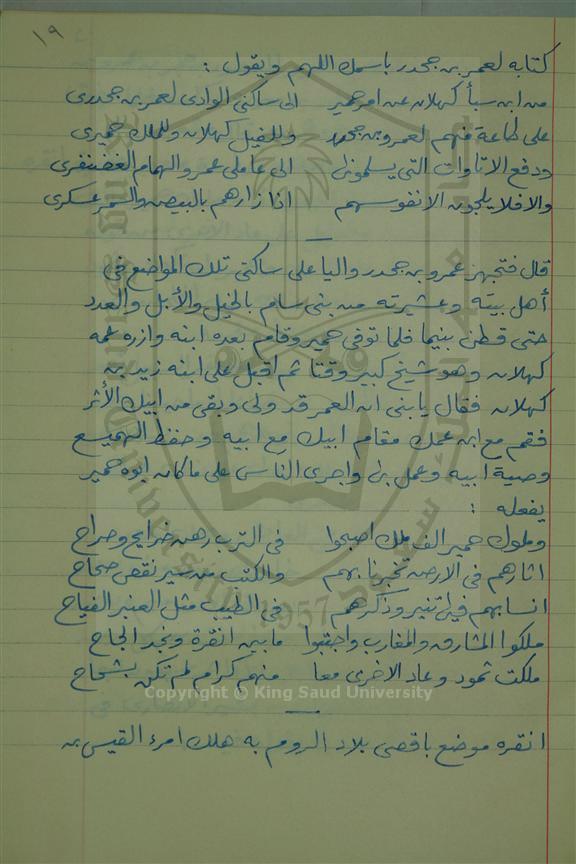 ١٩
كتابه لعمر بن جحدر باسمك اللهم ويقول :
من ابن سبأ كهلان عن امر حمير الى ساكني الوادى لعمر بن جحدرى
على طاعة منهم لعمرو بن جحدر وللخيل كهلان وللملك حميرى
ودفع الاتاوات التي يسلمونها الى عاملى عمرو الهمام الغضنفرى
والا فلا يلجون الا نفوسهم اذا زارهم بالبيض والسمر عسكرى
قال فتجهز عمرو بن جحدر واليا على ساكني تلك المواضع في
أهل بيته وعشيرته من بنى سام بالخيل والأبل والعدد
حتى قطن بينهما فلما توفى حمير وقام بعده ابنه وازره عمه
كهلان وهو شيخ كبير وقتا ثم اقبل على ابنه زيد بن
كهلان فقال يا بنى ان العمر قد ولى وبقى من ابيك الأثر
فقم مع ابن عمك مقام ابيك مع ابيه وحفظ الهميسع
وصية ابيه وعمل بها واجرى الناس على ما كان ابوه حمير
يفعله :
وملوك حمير الف ملك اصبحوا فى الترب رهن ضرايح وصراح
اثارهم فى الارض تخبرنا بهم والكتب من سير تقص صحاح
انسابهم فيها تنير وذكرهم فى الطيب مثل العنبر الفياح
ملكوا المشارق والمغارب واحتبوا ما بين انقرة ونجد الجاح
ملكت ثمود وعاد الاخرى معا منهم كرام لم تكن بشحاح
Copyright © King Saud University
1957
انقره موضع باقصى بلاد الروم به هلك امرء القيس بن